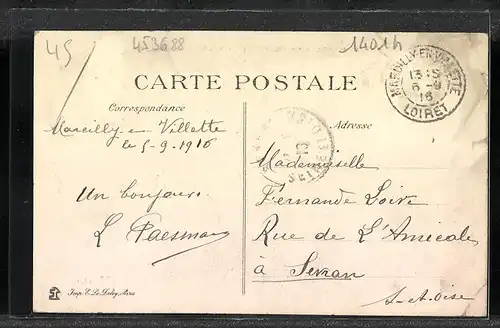 45
453688
1401h
CARTE POSTALE
Correspondance
Adresse
Marcilly-en-Villette
le 5-9-1916
Un bonjour
L
MARCILLY-EN-VILLETTE
13 15
6 -9
16
LOIRET
Mademoiselle
Fernande Loire
Rue de L'Amicale
à Sevran
S-et-Oise
Imp. E. Le Deley, Paris